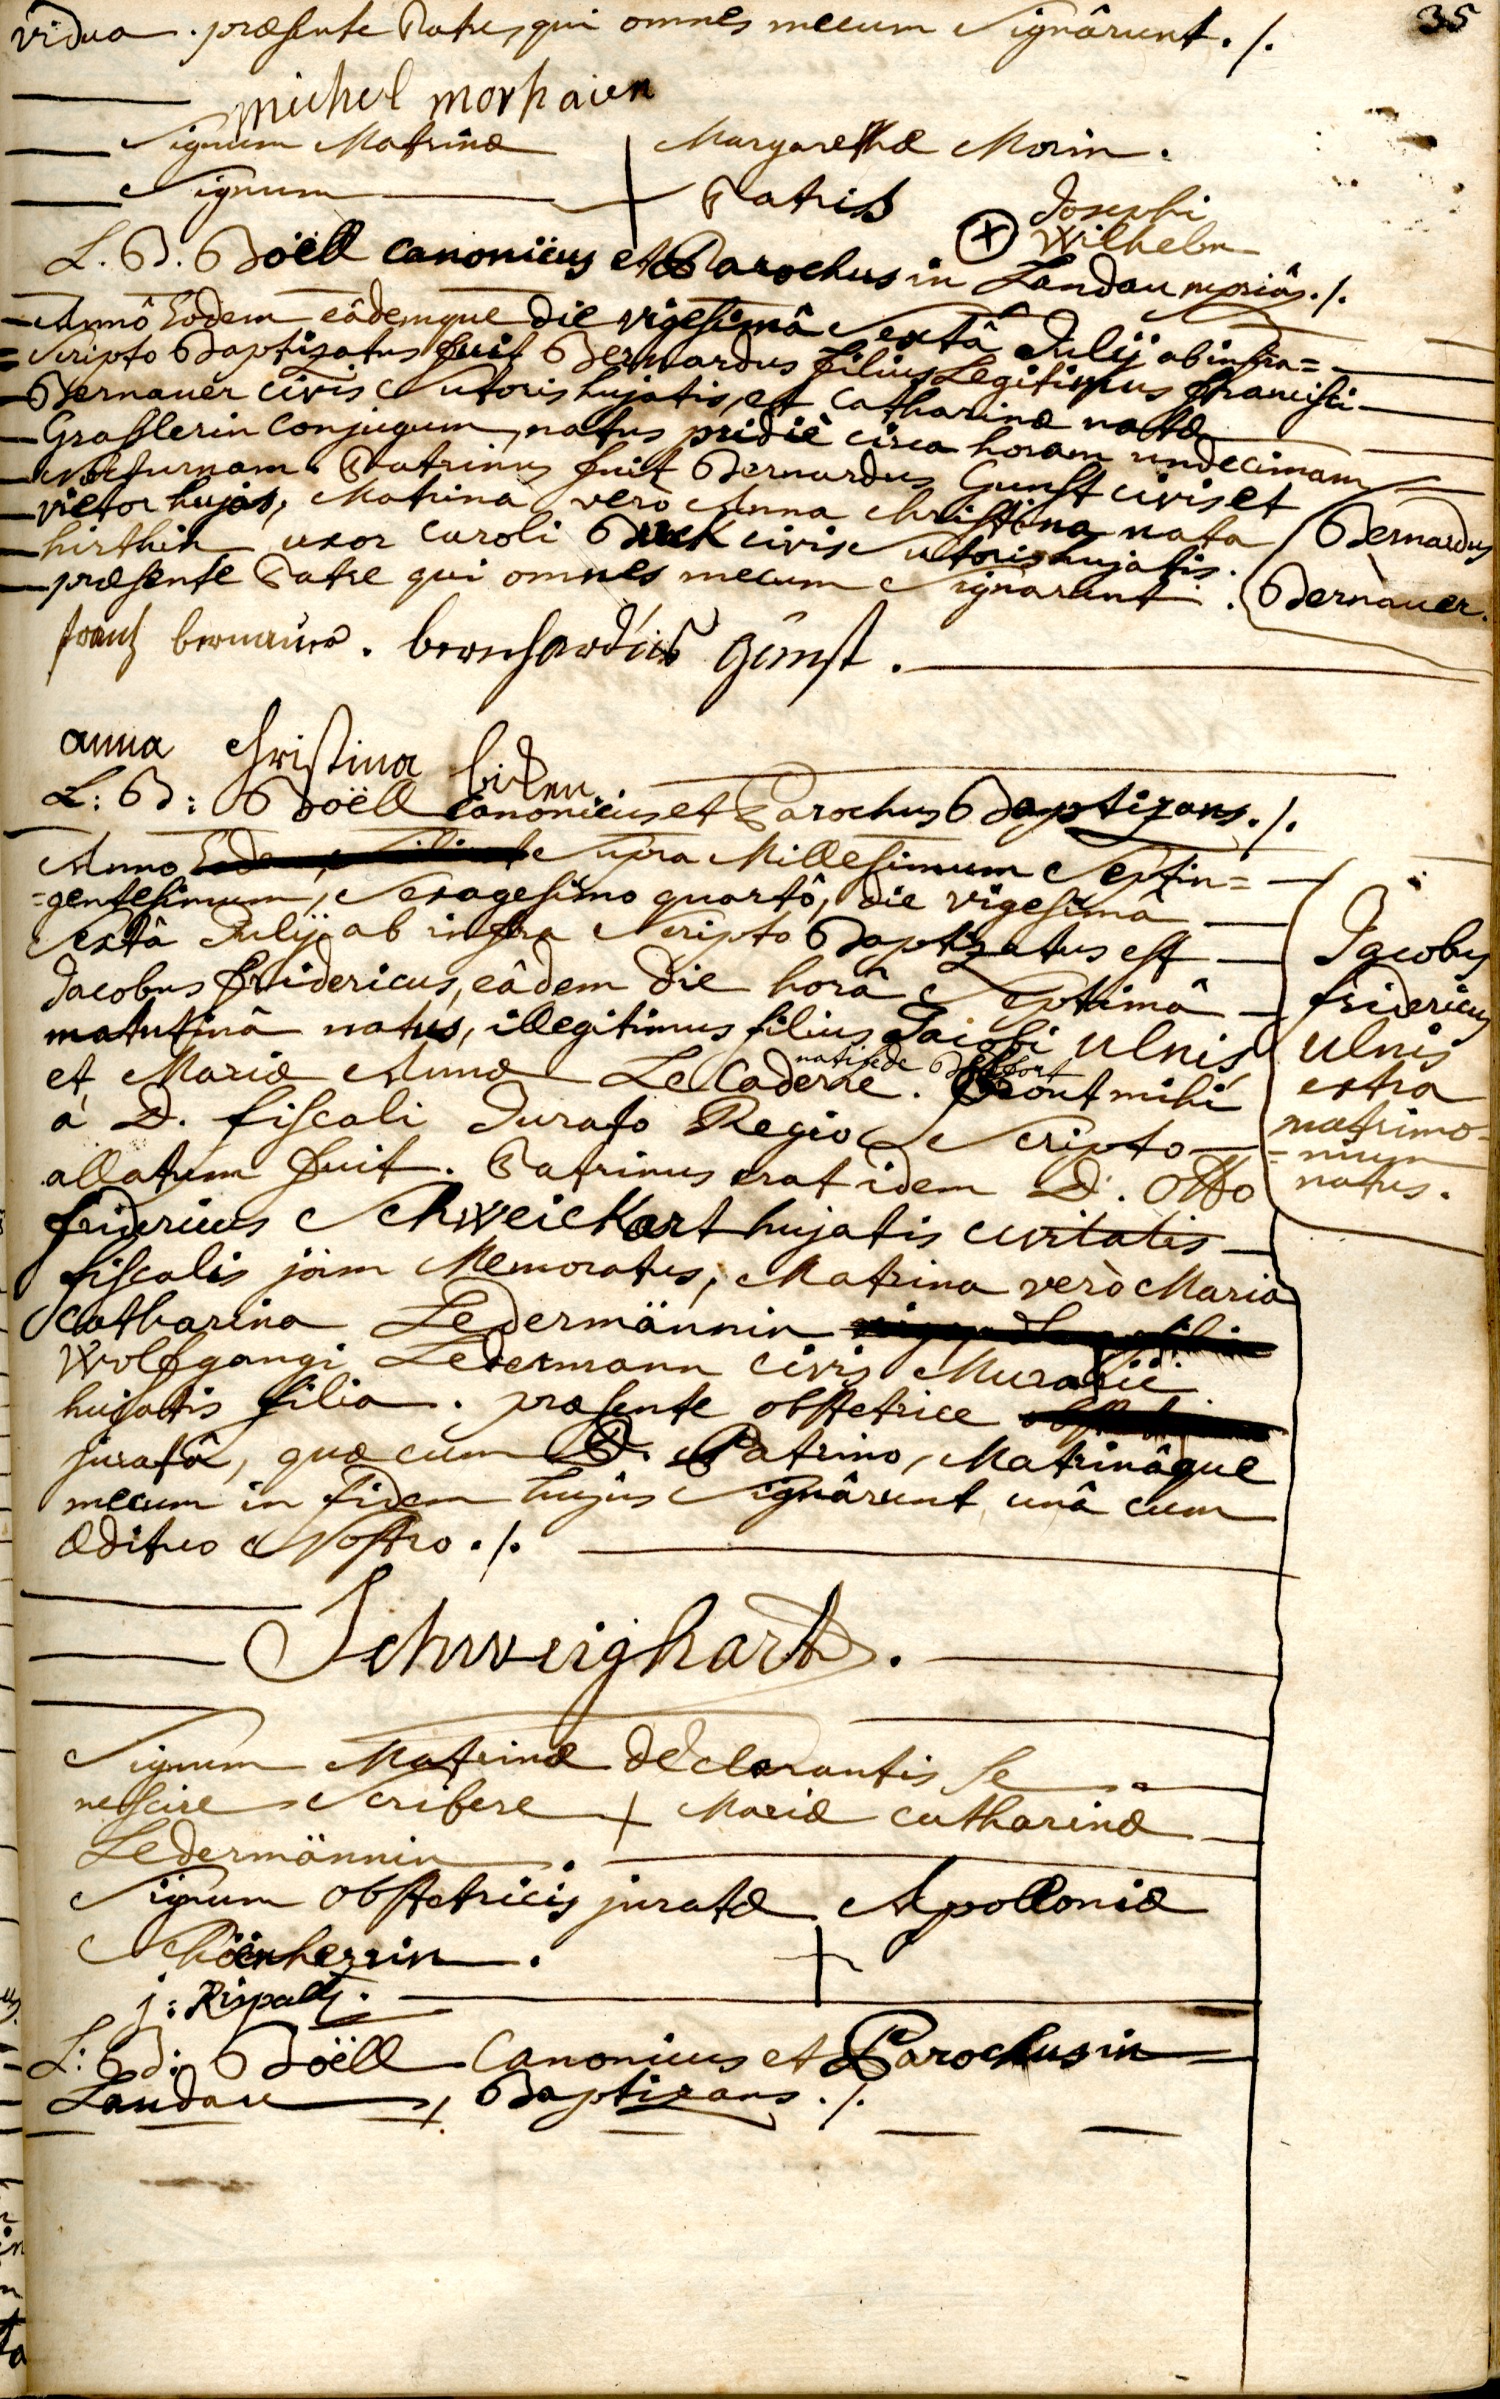 35
vidua . præsente Patre, qui omnes mecum Signârunt ./.
michel morhaien
Signum Matrinæ Margarethæ Morin .
Signum + Patris Josephi
Wilhelm
L. B. Boëll canonicus et Parochus in Landau mpriâ ./.
Annô Eodem eâdemque die vigesimâ Sextâ Julij ab infra=
scripto Baptizatus fuit Bernardus filius Legitimus francisci
Bernauer civis Sutoris hujatis, et Catharinæ natæ
Grasslerin Conjugum, natus pridiè circa horam undecimam
nocturnam. Patrinus fuit Bernardus Gunst civis et
vietor hujas, Matrina verò Anna Christina nata
hirthin uxor Caroli Buck civis Sutoris hujatis.
præsente Patre qui omnes mecum Signârunt .
Bernardus
Bernauer.
frantz bernauer . bernhardus günst .
anna christina
L: B: Boëll Canonicus et Parochus Baptizans ./.
Anno supra Millesimum Septin=
=gentesimum, Sexagesimo quartô, die vigesimâ
sextâ Julij ab infra Scripto Baptizatus est
Jacobus fridericus, eâdem die horâ Septimâ
matutinâ natus, illegitimus filius Jacobi Ulnis
et Mariæ Annæ Le Caderne . Prout mihi
à D. fiscali Jurato Regio Scripto
allatum fuit . Patrinus erat idem D. Otto
fridericus Schweickart hujatis civitatis
fiscalis jam Memoratus, Matrina verò Maria
Catharina Ledermännin
Wolfgangi Ledermann civis Murarii
hujatis filia . præsente obstetrice
juratâ, quæ cum D. Patrino, Matrinâque
mecum in fidem hujus Signârunt unâ cum
Ædituo Nostro ./.
Jacobus
fridericus
Ulnis
extra
matrimo=
=nium
natus .
Schweighart .
Signum Matrinæ declarantis se
nescire Scribere + Mariæ Catharinæ
Ledermännin .
Signum obstetricis juratæ Apolloniæ
Schönherrin . +
L: B: Boëll Canonicus et Parochus in
Landau, Baptizans ./.